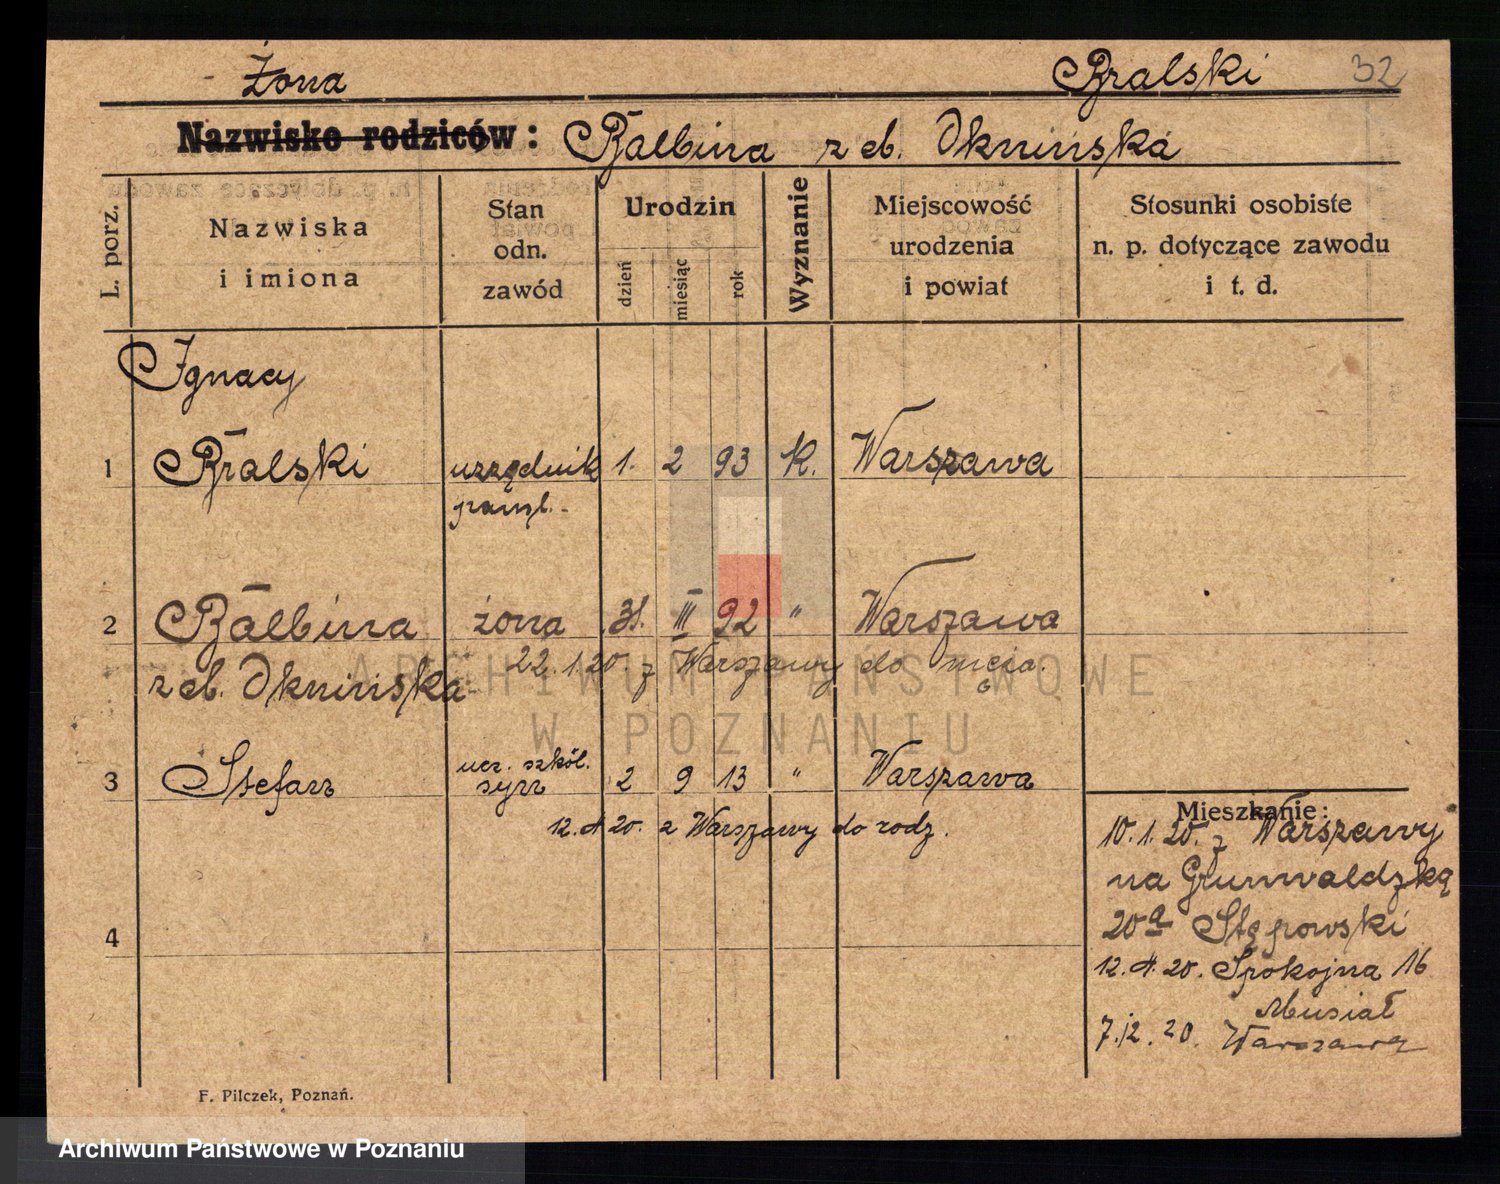 Żona Bralski 32
Nazwisko rodziców: Balbina z cb. Oknińska
L. porz.
Nazwiska i imiona
Stan odn. zawód
Urodzin
dzień
miesiąc
rok
Wyznanie
Miejscowość urodzenia i powiat
Stosunki osobiste n. p. dotyczące zawodu i t. d.
Ignacy
1 Bralski urzędnik 1. 2 93 K. Warszawa
państ.
2 Balbina żona 31. III 92 " Warszawa
22.1.20. z Warszawy do męża.
z cb. Oknińska
ucz. szkól.
3 Stefan syn 2 9 13 " Warszawa
12.4.20. z Warszawy do rodz.
4
Mieszkanie:
10.1.20. z Warszawy
na Grunwaldzką
20a Stępowski
12.4.20. Spokojna 16
Musiał
7.12.20. Warszawa
F. Pilczek, Poznań.
ARCHIWUM PAŃSTWOWE
W POZNANIU
Archiwum Państwowe w Poznaniu